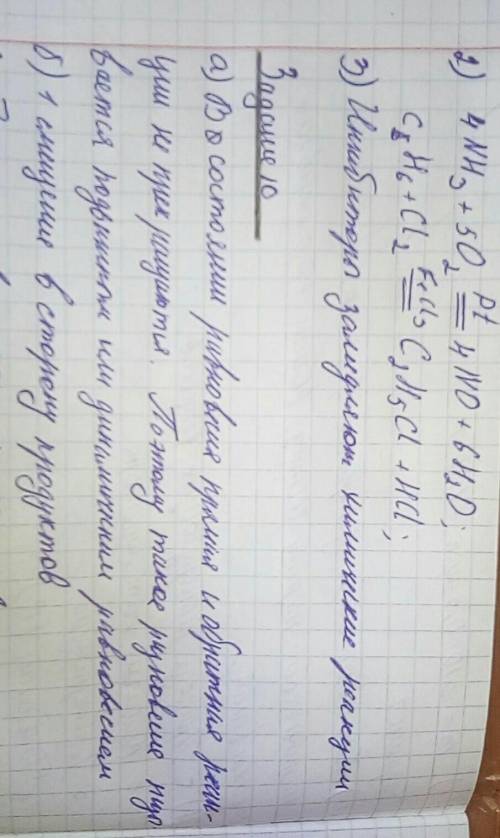 2) 4NH₃ + 5O₂ =Pt= 4NO + 6H₂O;
C₆H₆ + Cl₂ =FeCl₃= C₂H₅Cl + HCl;
3) Ингибиторы замедляют химические реакции
Задание 10
а) В состоянии равновесия прямая и обратная реак-
ции не прекращаются. Поэтому такое равновесие назы
вается подвижным или динамичным равновесием
б) 1 смещение в сторону продуктов